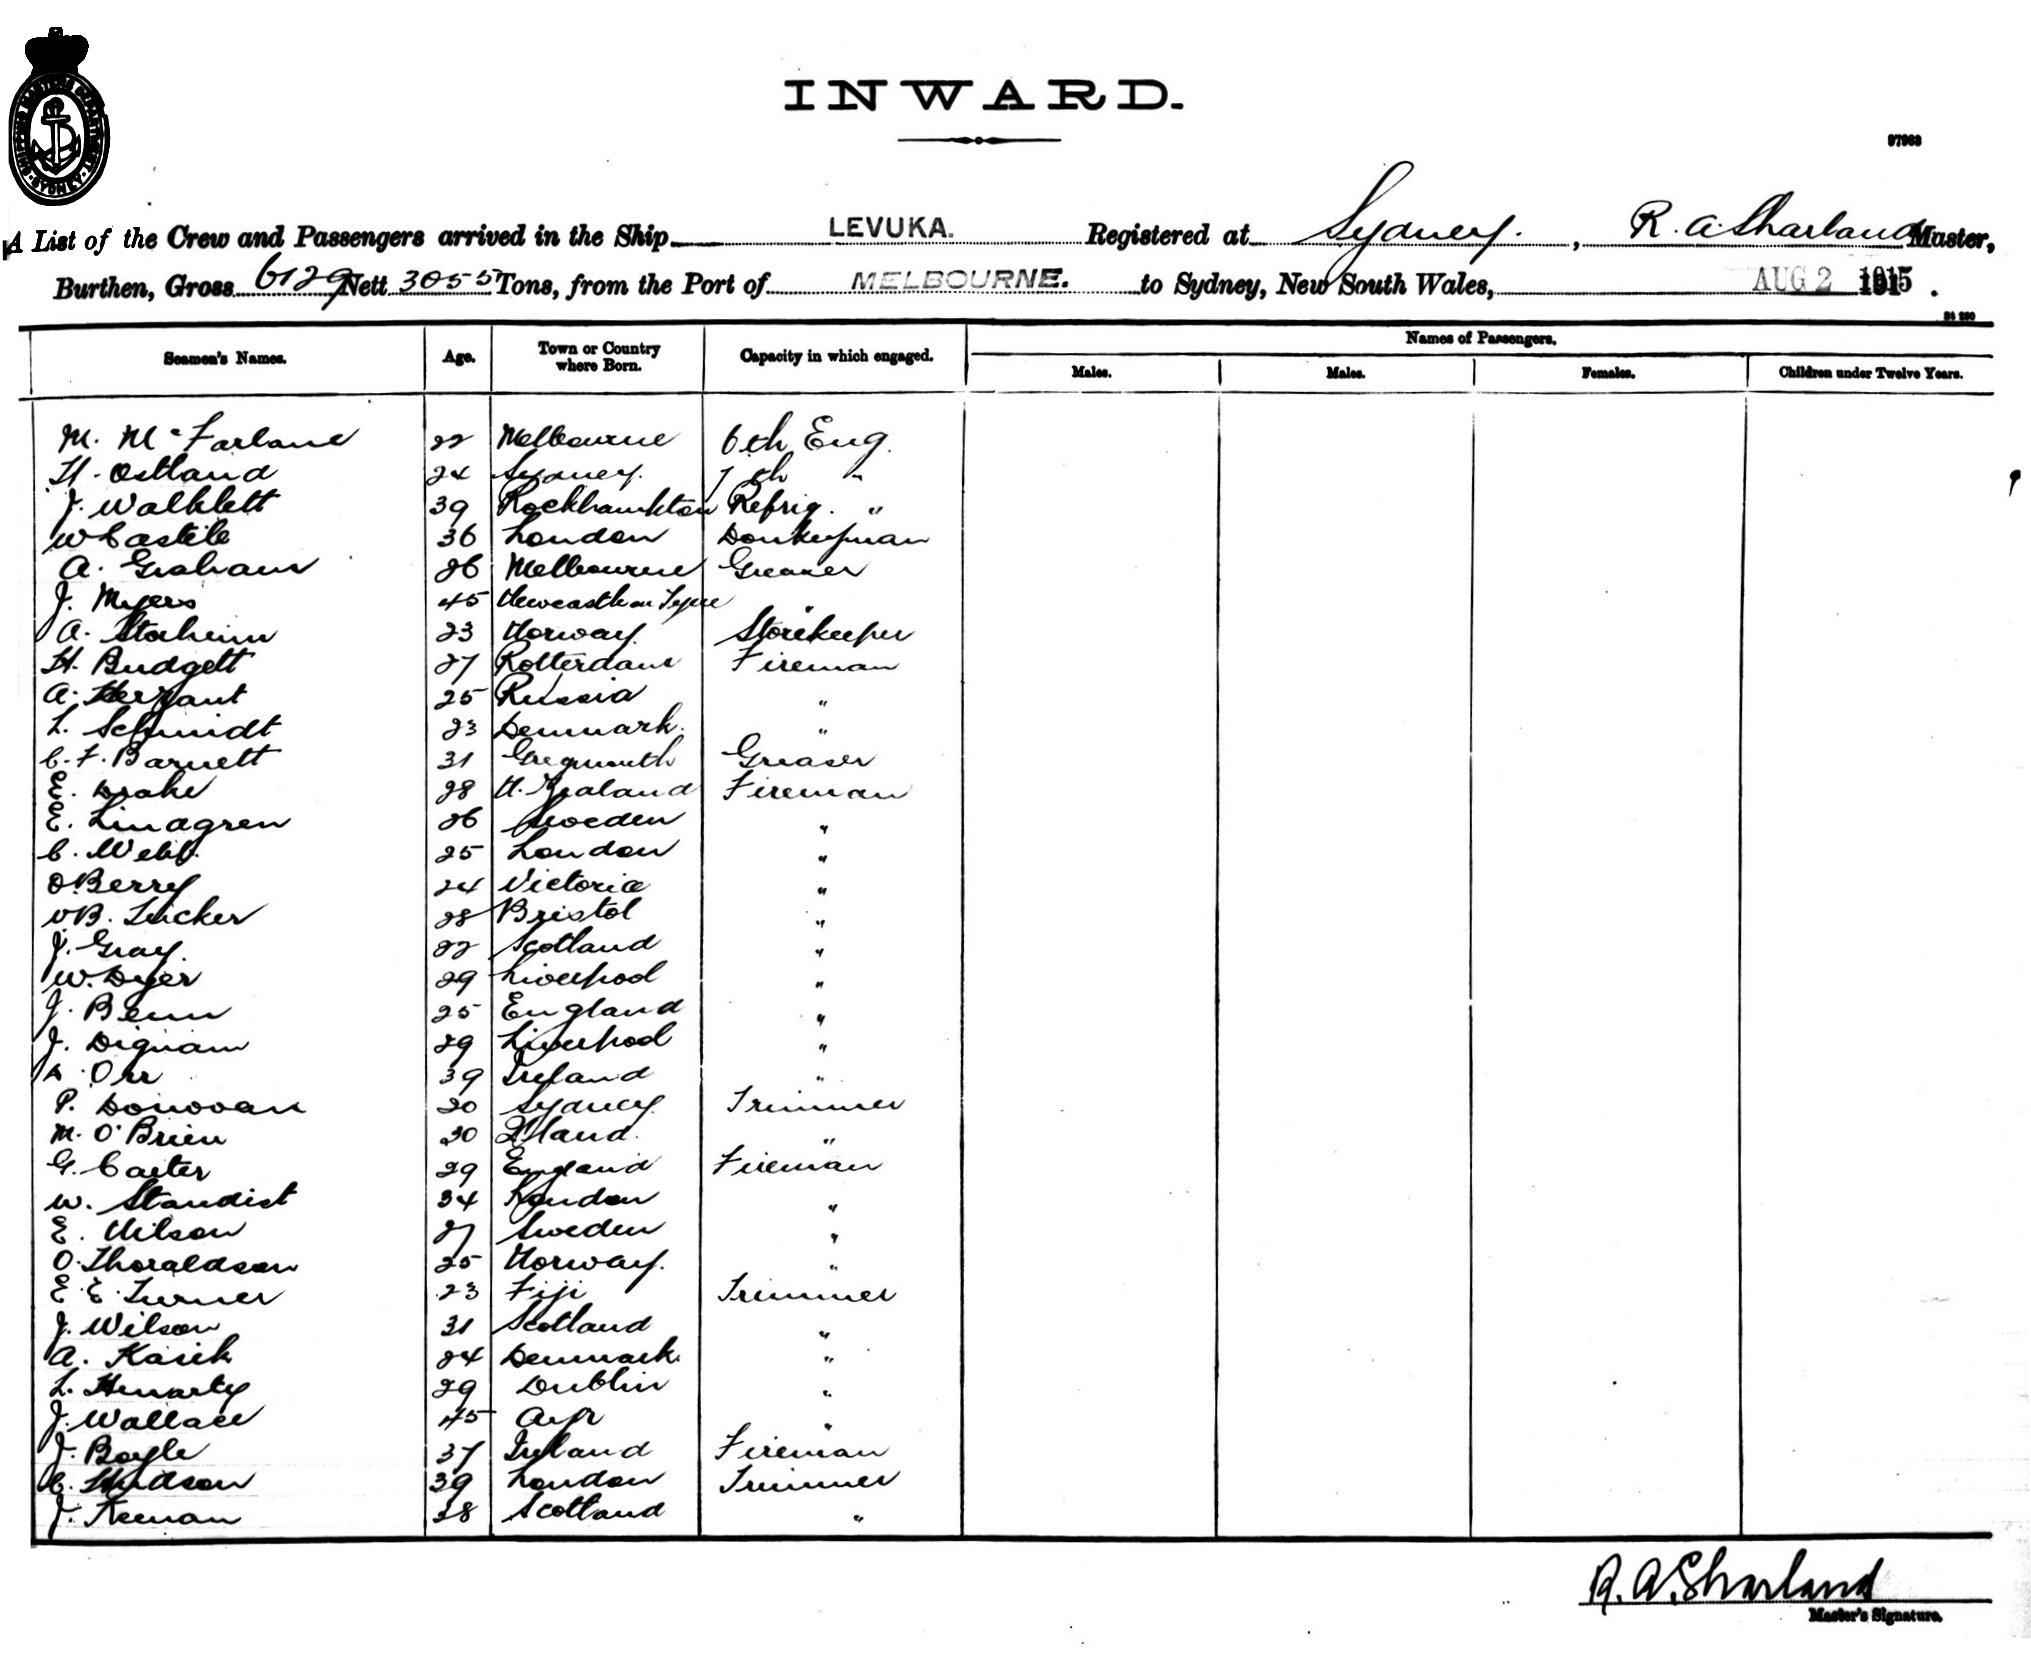 SHIPPING MASTER'S DEPARTMENT SYDNEY
INWARD.
97963
A List of the Crew and Passengers arrived in the Ship LEVUKA. Registered at Sydney. , R. A. Sharland Master,
Burthen, Gross 6129 Nett 3055 Tons, from the Port of MELBOURNE. to Sydney, New South Wales, AUG 2 1915 .
Seamen's Names. Age. Town or Country where Born. Capacity in which engaged. Names of Passengers.
Males. Males. Females. Children under Twelve Years.
M. McFarlane 22 Melbourne 6th Eng.
H. Ostland 24 Sydney. 7th "
J. Walklett 39 Rockhampton Refrig. "
W Castile 36 London Donkeyman
A. Graham 26 Melbourne Greaser
J. Myers 45 Newcastle on Tyne "
A. 23 Norway. Storekeeper
H. Budgett 27 Rotterdam Fireman
A. 25 Russia "
L. Schmidt 23 Denmark. "
C. F. Barnett 31 Greymouth Greaser
E. Drake 28 N. Zealand Fireman
E. Lindgren 26 Sweden "
C. Webb. 25 London "
O. Berry 24 Victoria "
W B. Tucker 28 Bristol "
J. Gray. 22 Scotland "
W. Dyer 29 Liverpool "
J. Benn 25 England "
J. Dignam 29 Liverpool "
Orr 39 Ireland "
P. Donovan 20 Sydney. Trimmer
M. O'Brien 30 Q'land. "
G. Carter 29 England Fireman
W. Standist 34 London "
E. Nilson 27 Sweden "
O. Thoraldsen 25 Norway. "
E. E. Turner 23 Fiji Trimmer
J. Wilson 31 Scotland "
A. Kasik 24 Denmark. "
L. Hinarty 29 Dublin "
J. Wallace 45 Ayr "
J. Boyle 37 Ireland Fireman
C. Hudson 39 London Trimmer
J. Keenan 38 Scotland "
R. A. Sharland
Master's Signature.